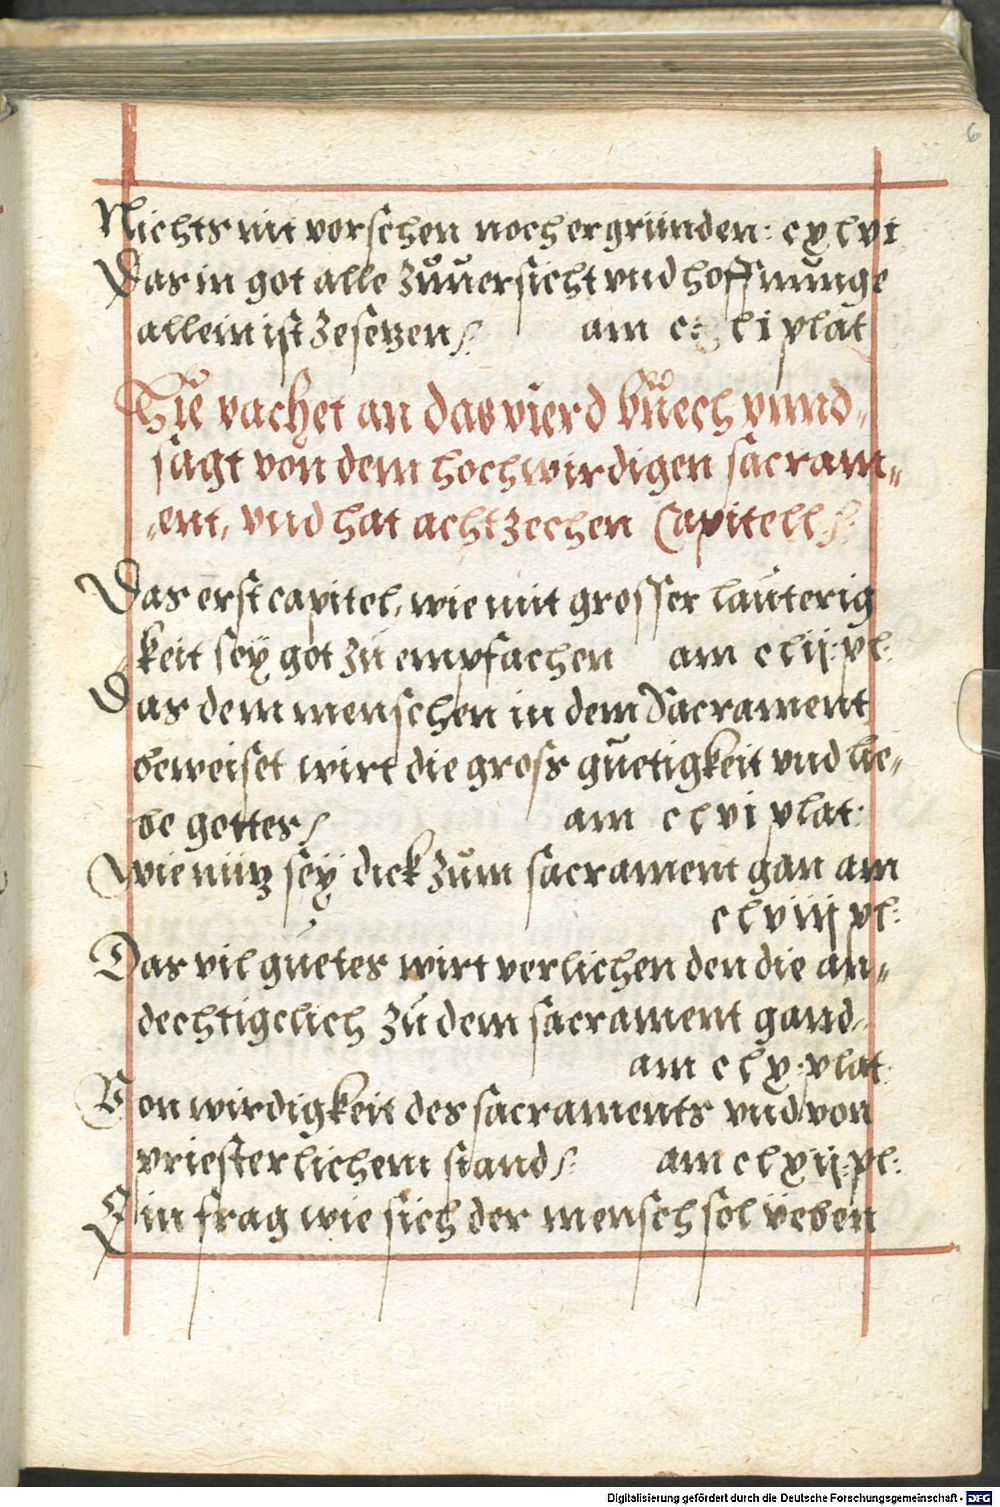 6
Nichts nit vorschen noch ergrunden: cxlvi
Das in got alle zůuersicht vnd hoffnunge
allein ist zesetzen am c: li plat
Hie vachet an das vierd bůech vnnd
sagt von dem hochwirdigen sacram=
=ent, vnd hat achtzechen Capitell
Das erst capitel, wie mit grosser lauterig
keit sey got zů empfachen am clij: pl:
Das dem menschen in dem Sacrament
beweiset wirt die gross guetigkeit vnd lie=
be gottes am clvi plat:
Wie nütz seÿ dick zům sacrament gan am
clviij pl:
Das vil guetes wirt verlichen den die an=
dechtigclich zů dem sacrament gand
am clx: plat
Von wirdigkeit des sacraments vnd von
priesterlichem stand am clxij: pl:
Ein frag wie sich der mensch sol üeben
Digitalisierung gefördert durch die Deutsche Forschungsgemeinschaft - DFG